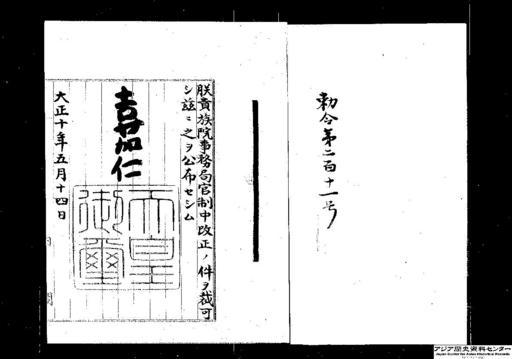 勅令第二百十一号
朕貴族院事務局官制中改正ノ件ヲ裁可
シ茲ニ之ヲ公布セシム
嘉仁
天皇
御璽
大正十年五月十四日
アジア歴史資料センター
Japan Center for Asian Historical Records